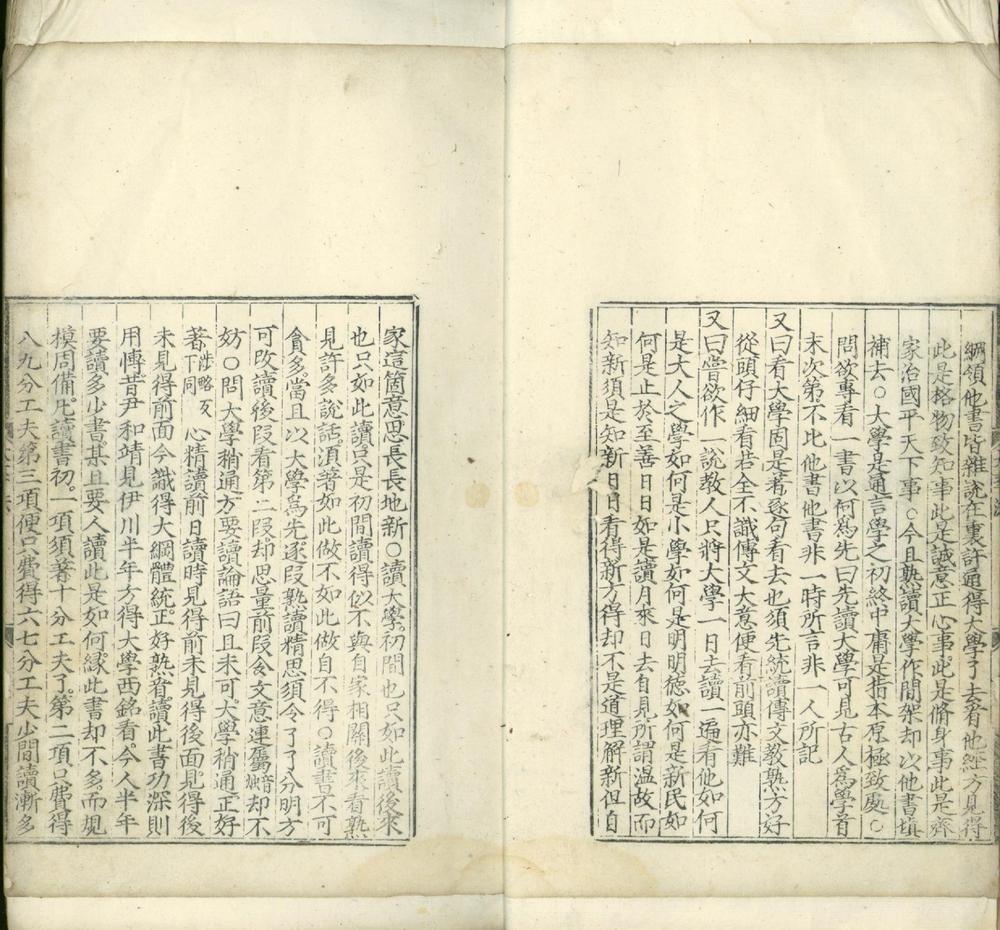 綱領他書皆雜說在裏許通得大學了去看他經方見得
此是格物致知事此是誠意正心事此是脩身事此是齊
家治國平天下事○今且熟讀大學作間架却以他書塡
補去○大學是通言學之初終中庸是指本原極致處○
問欲專看一書以何爲先曰先讀大學可見古人爲學首
末次第不比他書他書非一時所言非一人所記
又曰看大學固是著逐句看去也須先統讀傳文敎熟方好
從頭仔細看若全不識傳文大意便看前頭亦難
又曰嘗欲作一說敎人只將大學一日去讀一遍看他如何
是大人之學如何是小學如何是明明德如何是新民如
何是止於至善日日如是讀月來日去自見所謂溫故而
知新須是知新日日看得新方得却不是道理解新但自
家這箇意思長長地新○讀大學初間也只如此讀後來
也只如此讀只是初間讀得似不與自家相關後來看熟
見許多說話湏著如此做不如此做自不得○讀書不可
貪多當且以大學爲先逐段熟讀精思須令了了分明方
可改讀後段看第二段却思量前段令文意連屬䵝却不
妨○問大學稍通方要讀論語曰且未可大學稍通正好
著涉略反下同心精讀前日讀時見得前未見得後面見得後
未見得前面今識得大綱體統正好熟看讀此書功深則
用愽昔尹和靖見伊川半年方得大學西銘看今人半年
要讀多少書某且要人讀此是如何緣此書却不多而規
模周備凡讀書初一項須著十分工夫了第二項只費得
八九分工夫第三項便只費得六七分工夫少間讀漸多